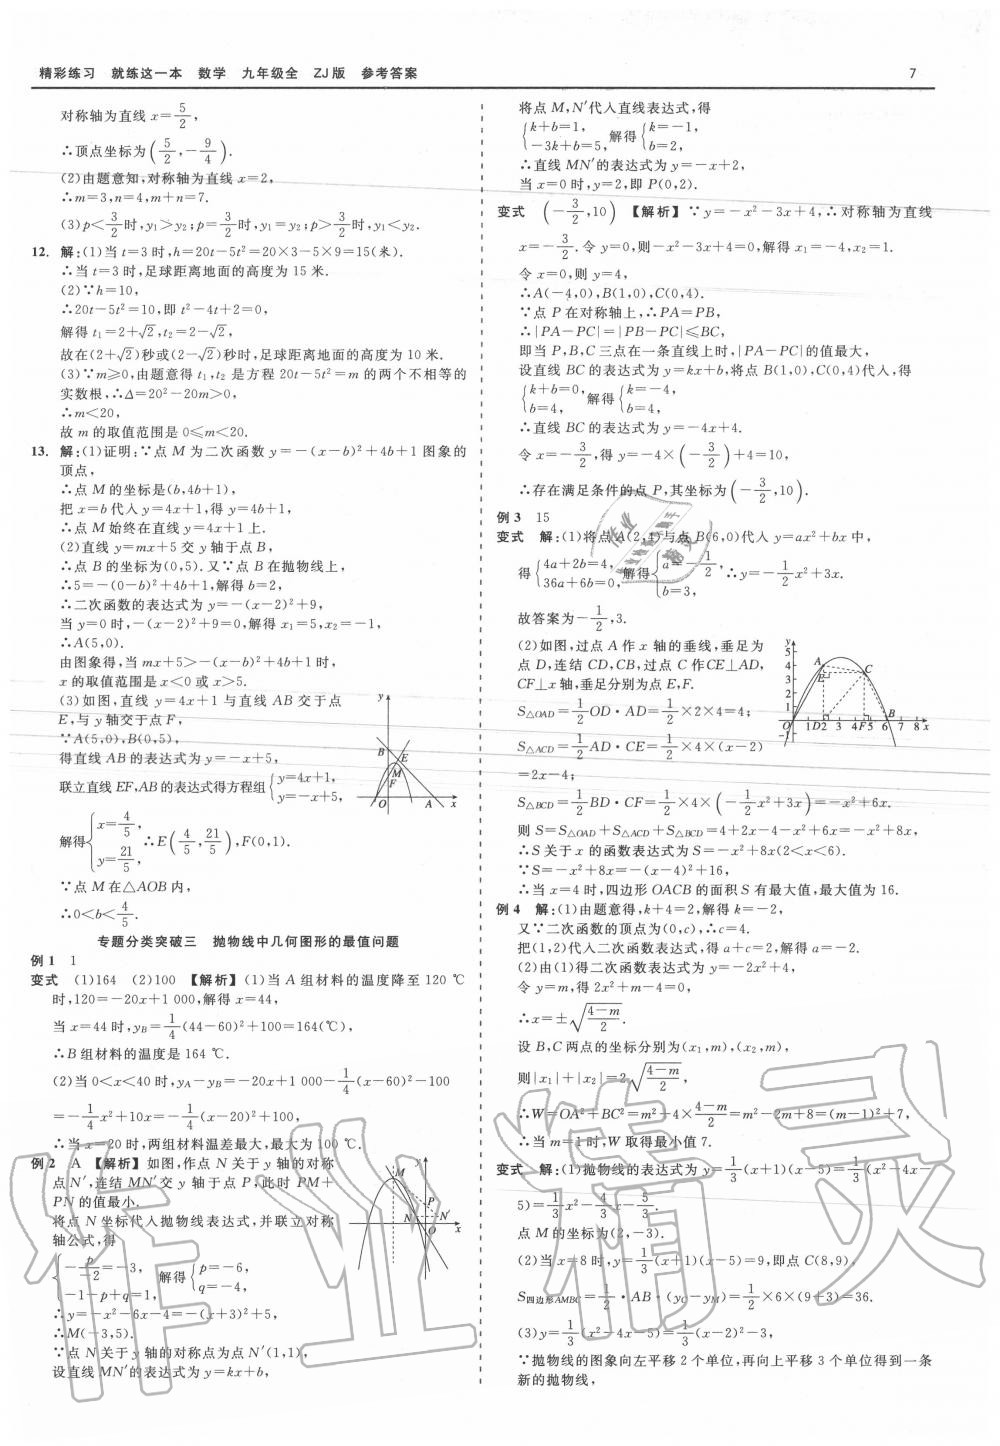 精彩练习 就练这一本 数学 九年级全 ZJ版 参考答案 7
对称轴为直线x=5/2,
∴顶点坐标为(5/2,-9/4).
(2)由题意知,对称轴为直线x=2,
∴m=3,n=4,m+n=7.
(3)p<3/2时,y₁>y₂;p=3/2时,y₁=y₂;p>3/2时,y₁<y₂.
12. 解:(1)当t=3时,h=20t-5t²=20×3-5×9=15(米).
∴当t=3时,足球距离地面的高度为15米.
(2)∵h=10,
∴20t-5t²=10,即t²-4t+2=0,
解得t₁=2+√2,t₂=2-√2,
故在(2+√2)秒或(2-√2)秒时,足球距离地面的高度为10米.
(3)∵m≥0,由题意得t₁,t₂是方程20t-5t²=m的两个不相等的
实数根,∴Δ=20²-20m>0,
∴m<20,
故m的取值范围是0≤m<20.
13. 解:(1)证明:∵点M为二次函数y=-(x-b)²+4b+1图象的
顶点,
∴点M的坐标是(b,4b+1),
把x=b代入y=4x+1,得y=4b+1,
∴点M始终在直线y=4x+1上.
(2)直线y=mx+5交y轴于点B,
∴点B的坐标为(0,5).又∵点B在抛物线上,
∴5=-(0-b)²+4b+1,解得b=2,
∴二次函数的表达式为y=-(x-2)²+9,
当y=0时,-(x-2)²+9=0,解得x₁=5,x₂=-1,
∴A(5,0).
由图象得,当mx+5>-(x-b)²+4b+1时,
x的取值范围是x<0或x>5.
(3)如图,直线y=4x+1与直线AB交于点
E,与y轴交于点F,
∵A(5,0),B(0,5),
得直线AB的表达式为y=-x+5,
联立直线EF,AB的表达式得方程组{y=4x+1, y=-x+5,
解得{x=4/5, y=21/5, ∴E(4/5,21/5),F(0,1).
∵点M在△AOB内,
∴0<b<4/5.
y B E M F O A x
专题分类突破三 抛物线中几何图形的最值问题
例1 1
变式 (1)164 (2)100 【解析】(1)当A组材料的温度降至120 ℃
时,120=-20x+1 000,解得x=44,
当x=44时,y_B=1/4(44-60)²+100=164(℃),
∴B组材料的温度是164 ℃.
(2)当0<x<40时,y_A-y_B=-20x+1 000-1/4(x-60)²-100
=-1/4x²+10x=-1/4(x-20)²+100,
∴当x=20时,两组材料温差最大,最大为100 ℃.
例2 A 【解析】如图,作点N关于y轴的对称
点N′,连结MN′交y轴于点P,此时PM+
PN的值最小.
将点N坐标代入抛物线表达式,并联立对称
轴公式,得
{-p/-2=-3, -1-p+q=1, 解得{p=-6, q=-4,
∴y=-x²-6x-4=-(x+3)²+5,
∴M(-3,5).
∵点N关于y轴的对称点为点N′(1,1),
设直线MN′的表达式为y=kx+b,
M P N N′ O x
将点M,N′代入直线表达式,得
{k+b=1, -3k+b=5, 解得{k=-1, b=2,
∴直线MN′的表达式为y=-x+2,
当x=0时,y=2,即P(0,2).
变式 (-3/2,10) 【解析】∵y=-x²-3x+4,∴对称轴为直线
x=-3/2.令y=0,则-x²-3x+4=0,解得x₁=-4,x₂=1.
令x=0,则y=4,
∴A(-4,0),B(1,0),C(0,4).
∵点P在对称轴上,∴PA=PB,
∴|PA-PC|=|PB-PC|≤BC,
即当P,B,C三点在一条直线上时,|PA-PC|的值最大,
设直线BC的表达式为y=kx+b,将点B(1,0),C(0,4)代入,得
{k+b=0, b=4, 解得{k=-4, b=4,
∴直线BC的表达式为y=-4x+4.
令x=-3/2,得y=-4×(-3/2)+4=10,
∴存在满足条件的点P,其坐标为(-3/2,10).
例3 15
变式 解:(1)将点A(2,4)与点B(6,0)代入y=ax²+bx中,
得{4a+2b=4, 36a+6b=0, 解得{a=-1/2, b=3, ∴y=-1/2x²+3x.
故答案为-1/2,3.
(2)如图,过点A作x轴的垂线,垂足为
点D,连结CD,CB,过点C作CE⊥AD,
CF⊥x轴,垂足分别为点E,F.
S△OAD=1/2OD·AD=1/2×2×4=4;
S△ACD=1/2AD·CE=1/2×4×(x-2)
=2x-4;
S△BCD=1/2BD·CF=1/2×4×(-1/2x²+3x)=-x²+6x.
y 5 4 3 2 1 -1 A E C B O 1 D2 3 4F5 6 7 8 x
则S=S△OAD+S△ACD+S△BCD=4+2x-4-x²+6x=-x²+8x,
∴S关于x的函数表达式为S=-x²+8x(2<x<6).
∵S=-x²+8x=-(x-4)²+16,
∴当x=4时,四边形OACB的面积S有最大值,最大值为16.
例4 解:(1)由题意得,k+4=2,解得k=-2,
又∵二次函数的顶点为(0,c),∴c=4.
把(1,2)代入二次函数表达式,得a+c=2,解得a=-2.
(2)由(1)得二次函数表达式为y=-2x²+4,
令y=m,得2x²+m-4=0,
∴x=±√((4-m)/2).
设B,C两点的坐标分别为(x₁,m),(x₂,m),
则|x₁|+|x₂|=2√((4-m)/2),
∴W=OA²+BC²=m²+4×(4-m)/2=m²-2m+8=(m-1)²+7,
∴当m=1时,W取得最小值7.
变式 解:(1)抛物线的表达式为y=1/3(x+1)(x-5)=1/3(x²-4x-
5)=1/3x²-4/3x-5/3.
点M的坐标为(2,-3).
(2)当x=8时,y=1/3(x+1)(x-5)=9,即点C(8,9),
S四边形AMBC=1/2·AB·(y_C-y_M)=1/2×6×(9+3)=36.
(3)y=1/3(x²-4x-5)=1/3(x-2)²-3,
∵抛物线的图象向左平移2个单位,再向上平移3个单位得到一条
新的抛物线,
作业精灵